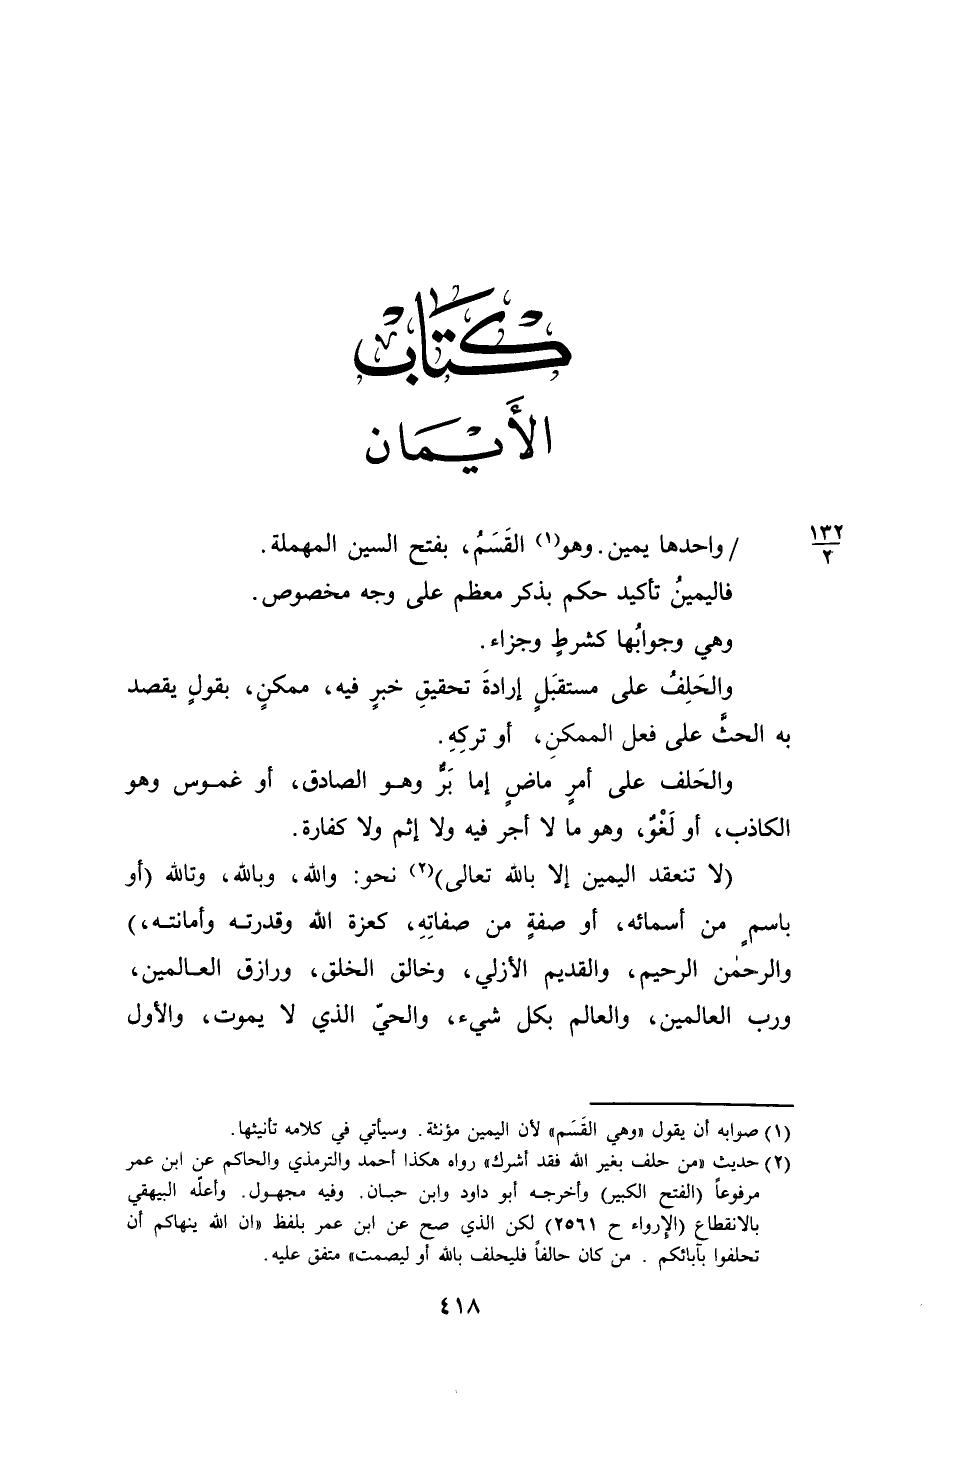 كتاب
الأيمان
١٣٢
٢
/ واحدها يمين. وهو(١) القَسَمُ، بفتح السين المهملة.
فاليمينُ تأكيد حكم بذكر معظم على وجه مخصوص.
وهي وجوابُها كشرطٍ وجزاء.
والحَلِفُ على مستقبَلٍ إرادةَ تحقيقِ خبرٍ فيه، ممكنٍ، بقولٍ يقصد
به الحثَّ على فعل الممكنِ، أو تركِهِ.
والحَلف على أمرٍ ماضٍ إما بَرٌّ وهو الصادق، أو غموس وهو
الكاذب، أو لَغْوٌ، وهو ما لا أجر فيه ولا إثم ولا كفارة.
(لا تنعقد اليمين إلا بالله تعالى)(٢) نحو: والله، وبالله، وتالله (أو
باسمٍ من أسمائه، أو صفةٍ من صفاتِهِ، كعزة الله وقدرته وأمانته،)
والرحمٰن الرحيم، والقديم الأزلي، وخالق الخلق، ورازق العالمين،
ورب العالمين، والعالم بكل شيء، والحيّ الذي لا يموت، والأول
(١) صوابه أن يقول «وهي القَسَم» لأن اليمين مؤنثة. وسيأتي في كلامه تأنيثها.
(٢) حديث «من حلف بغير الله فقد أشرك» رواه هكذا أحمد والترمذي والحاكم عن ابن عمر
مرفوعاً (الفتح الكبير) وأخرجه أبو داود وابن حبان. وفيه مجهول. وأعلّه البيهقي
بالانقطاع (الإرواء ح ٢٥٦١) لكن الذي صح عن ابن عمر بلفظ «ان الله ينهاكم أن
تحلفوا بآبائكم . من كان حالفاً فليحلف بالله أو ليصمت» متفق عليه.
٤١٨